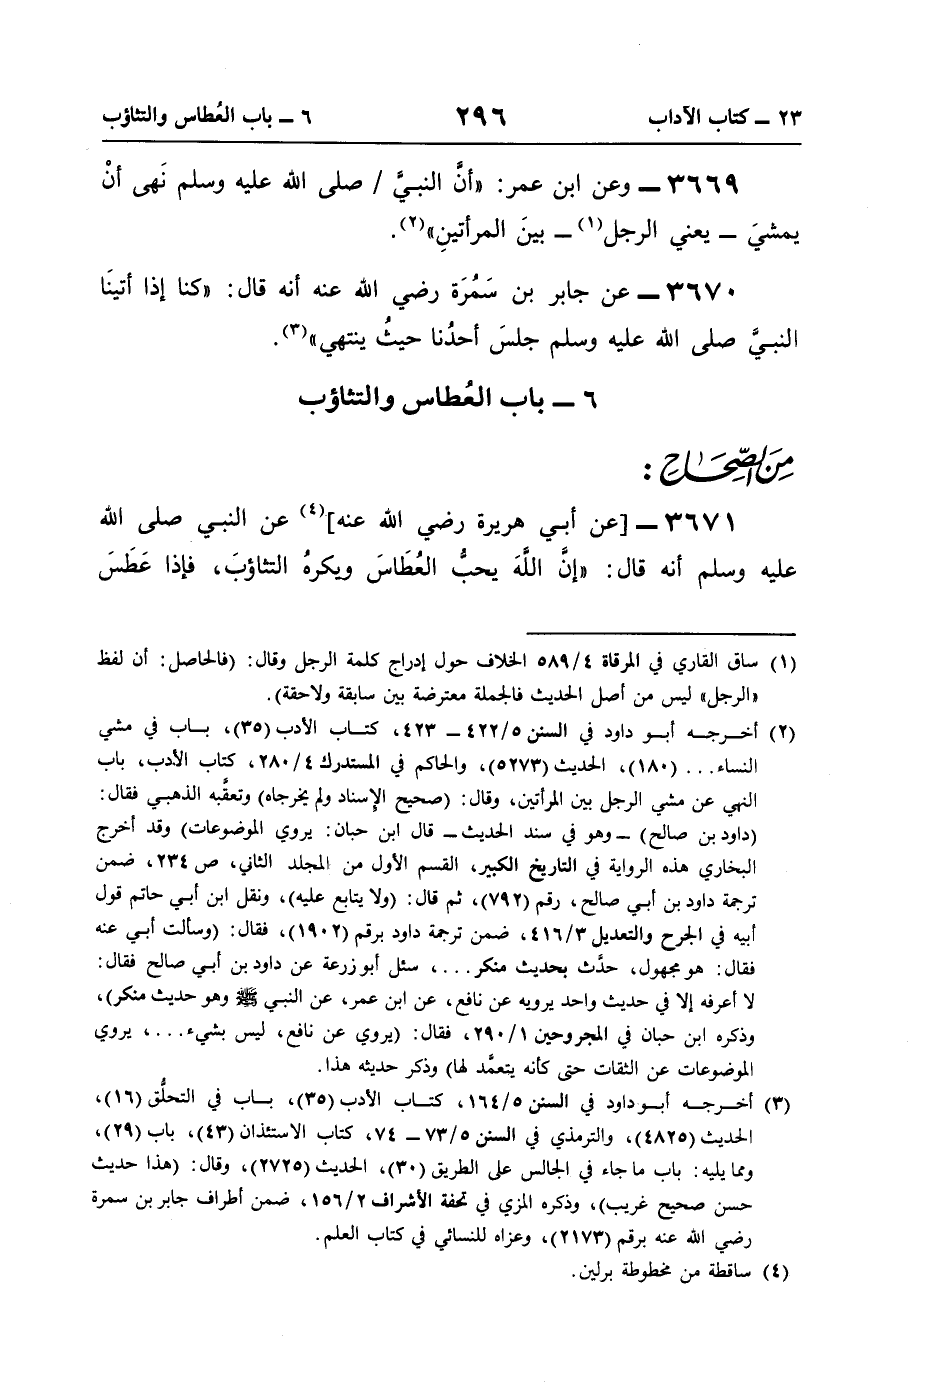 ٢٣ ــ كتاب الآداب ٢٩٦ ٦ ــ باب العُطاس والتثاؤب
٣٦٦٩ ــ وعن ابن عمر: «أنَّ النبيَّ / صلى الله عليه وسلم نَهى أنْ
يمشيَ ــ يعني الرجل(١) ــ بينَ المرأتينِ»(٢).
٣٦٧٠ ــ عن جابر بن سَمُرَة رضي الله عنه أنه قال: «كنا إذا أتينَا
النبيَّ صلى الله عليه وسلم جلسَ أحدُنا حيثُ ينتهي»(٣).
٦ ــ باب العُطاس والتثاؤب
مِنَ الصِّحَاحِ :
٣٦٧١ ــ [عن أبي هريرة رضي الله عنه](٤) عن النبي صلى الله
عليه وسلم أنه قال: «إنَّ اللَّهَ يحبُّ العُطَاسَ ويكرهُ التثاؤبَ، فإذا عَطَسَ
(١) ساق القاري في المرقاة ٥٨٩/٤ الخلاف حول إدراج كلمة الرجل وقال: (فالحاصل: أن لفظ
«الرجل» ليس من أصل الحديث فالجملة معترضة بين سابقة ولاحقة).
(٢) أخرجه أبو داود في السنن ٤٢٢/٥ ــ ٤٢٣، كتاب الأدب (٣٥)، باب في مشي
النساء... (١٨٠)، الحديث (٥٢٧٣)، والحاكم في المستدرك ٢٨٠/٤، كتاب الأدب، باب
النهي عن مشي الرجل بين المرأتين، وقال: (صحيح الإسناد ولم يخرجاه) وتعقَّبه الذهبي فقال:
(داود بن صالح) ــ وهو في سند الحديث ــ قال ابن حبان: يروي الموضوعات) وقد أخرج
البخاري هذه الرواية في التاريخ الكبير، القسم الأول من المجلد الثاني، ص ٢٣٤، ضمن
ترجمة داود بن أبي صالح، رقم (٧٩٢)، ثم قال: (ولا يتابع عليه)، ونقل ابن أبي حاتم قول
أبيه في الجرح والتعديل ٤١٦/٣، ضمن ترجمة داود برقم (١٩٠٢)، فقال: (وسألت أبي عنه
فقال: هو مجهول، حدَّث بحديث منكر...، سئل أبو زرعة عن داود بن أبي صالح فقال:
لا أعرفه إلا في حديث واحد يرويه عن نافع، عن ابن عمر، عن النبي ﷺ وهو حديث منكر)،
وذكره ابن حبان في المجروحين ٢٩٠/١، فقال: (يروي عن نافع، ليس بشيء...، يروي
الموضوعات عن الثقات حتى كأنه يتعمَّد لها) وذكر حديثه هذا.
(٣) أخرجه أبو داود في السنن ١٦٤/٥، كتاب الأدب (٣٥)، باب في التحلُّق (١٦)،
الحديث (٤٨٢٥)، والترمذي في السنن ٧٣/٥ ــ ٧٤، كتاب الاستئذان (٤٣)، باب (٢٩)،
ومما يليه: باب ما جاء في الجالس على الطريق (٣٠)، الحديث (٢٧٢٥)، وقال: (هذا حديث
حسن صحيح غريب)، وذكره المزي في تحفة الأشراف ١٥٦/٢، ضمن أطراف جابر بن سمرة
رضي الله عنه برقم (٢١٧٣)، وعزاه للنسائي في كتاب العلم.
(٤) ساقطة من مخطوطة برلين.